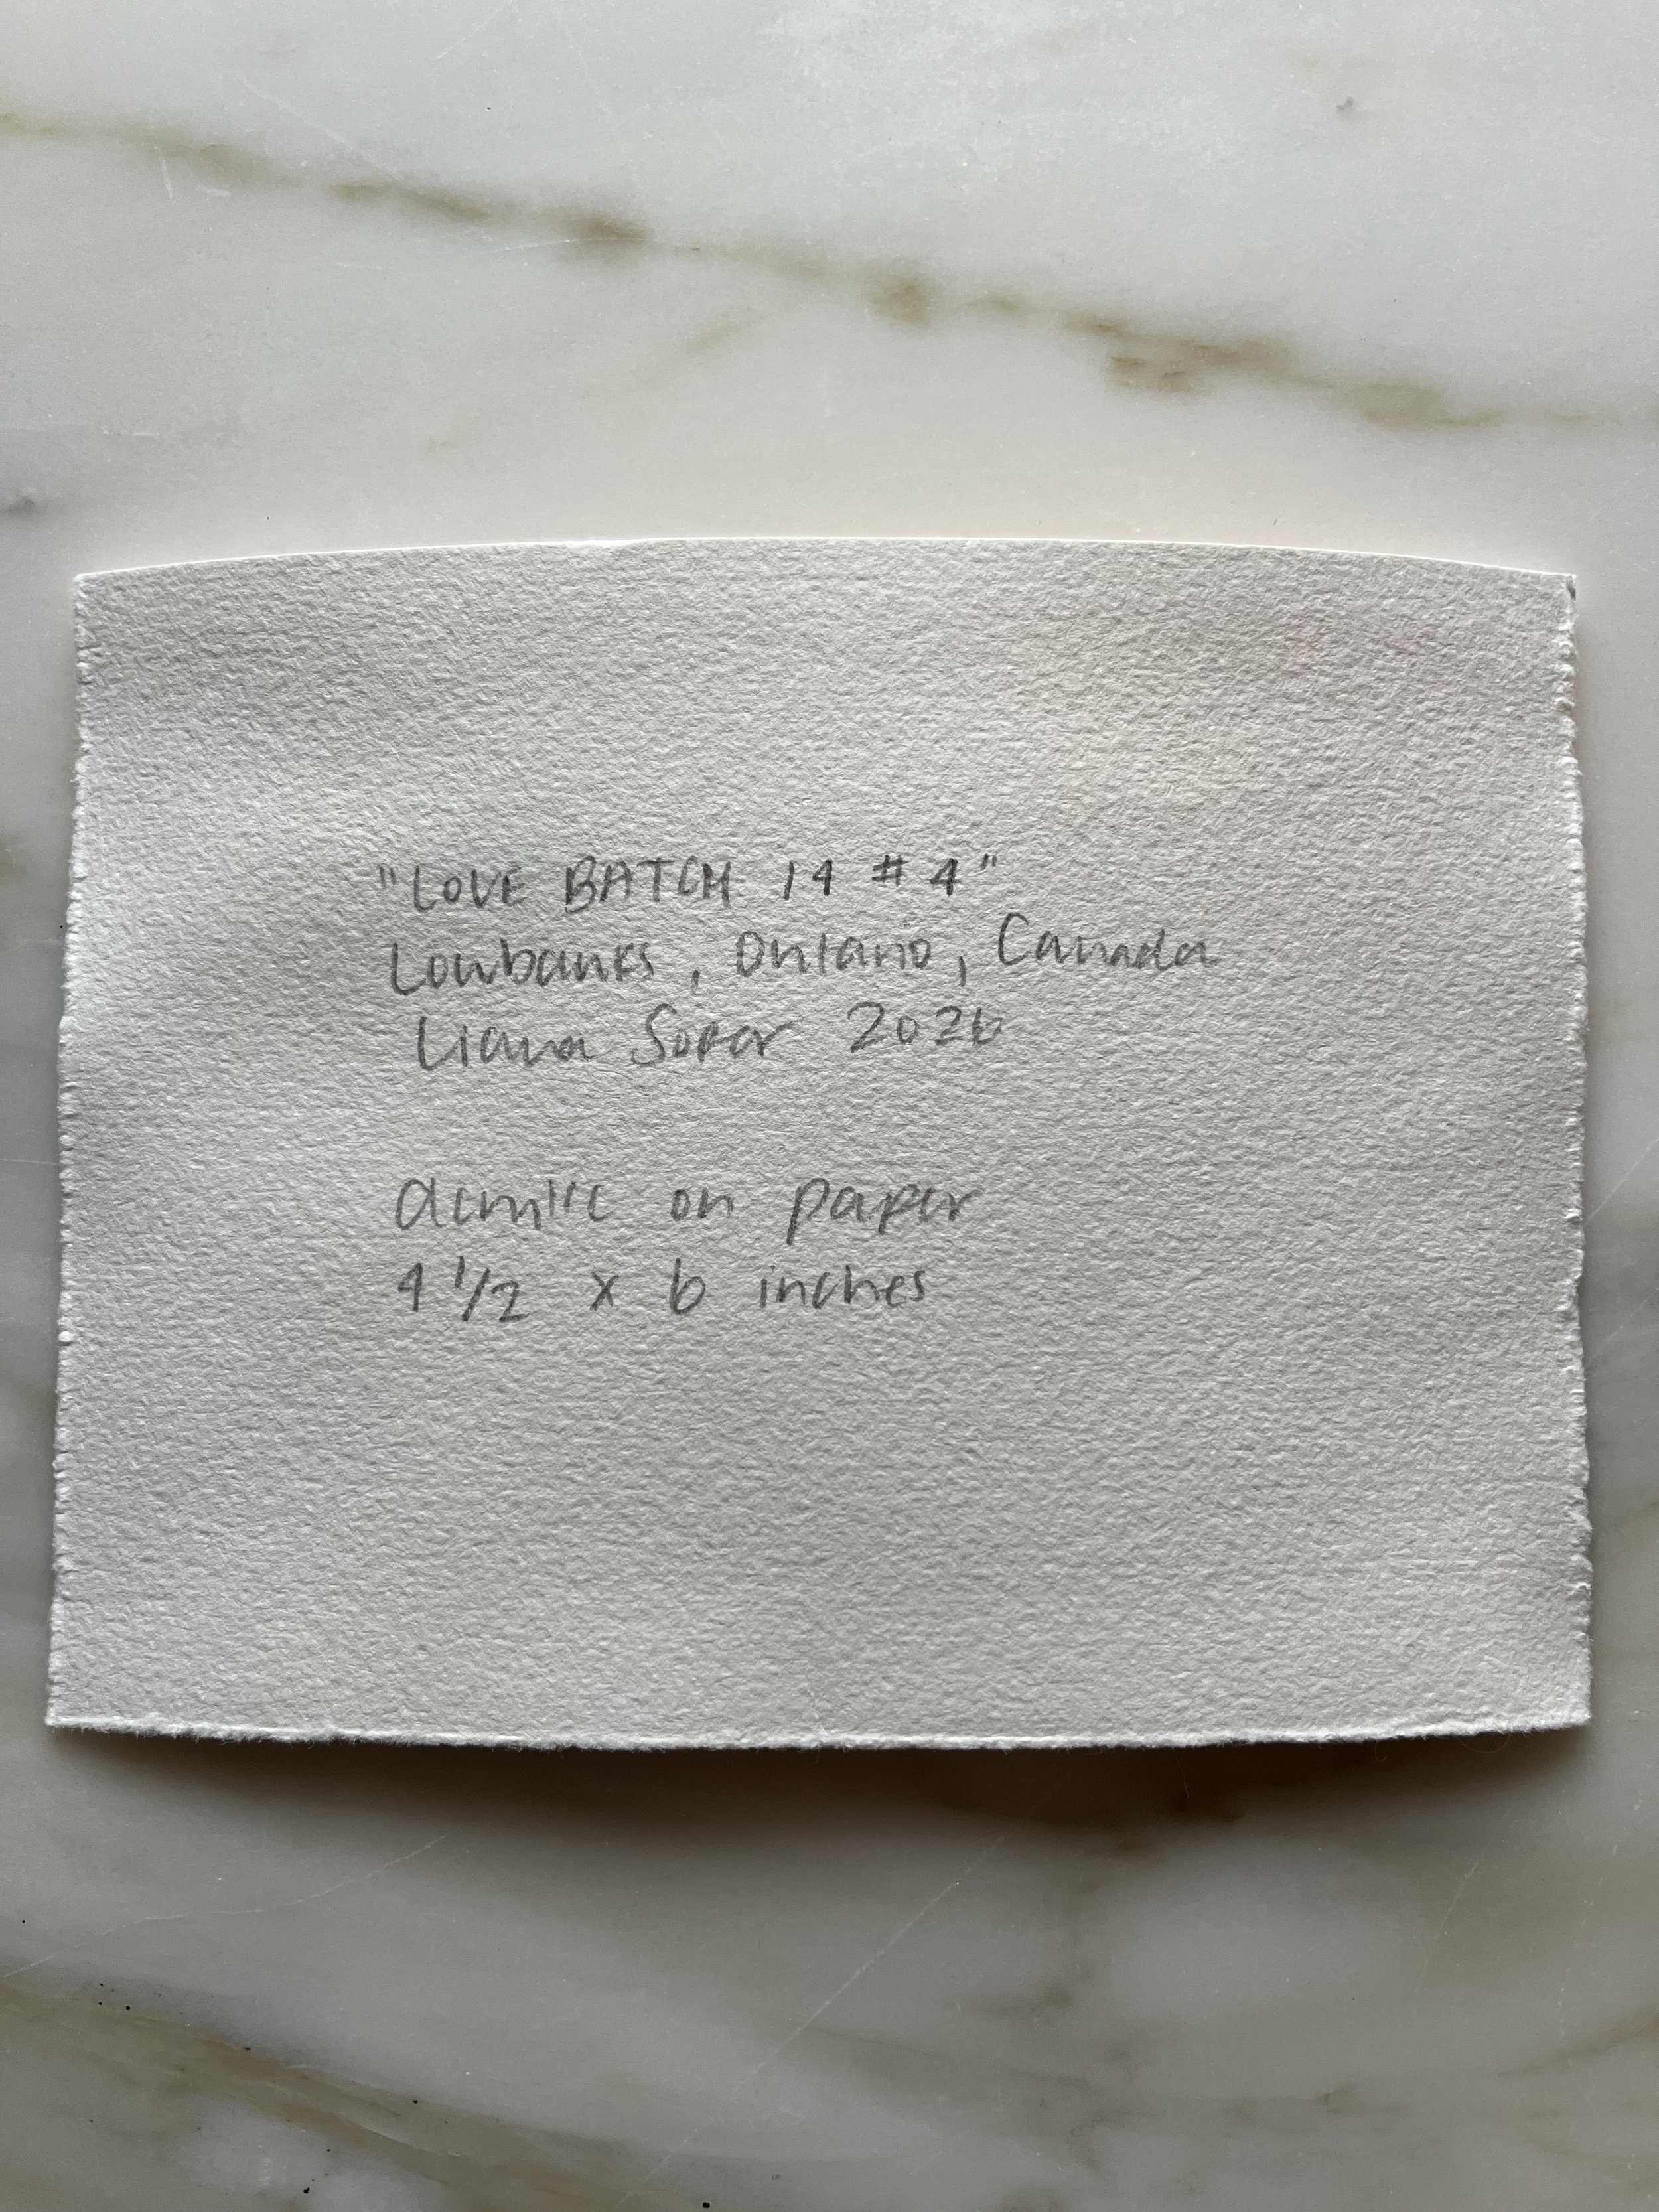 "LOVE BATCH 14 #4"
Lowbanks, Ontario, Canada
Liana 2026
acrylic on paper
4 1/2 x 6 inches